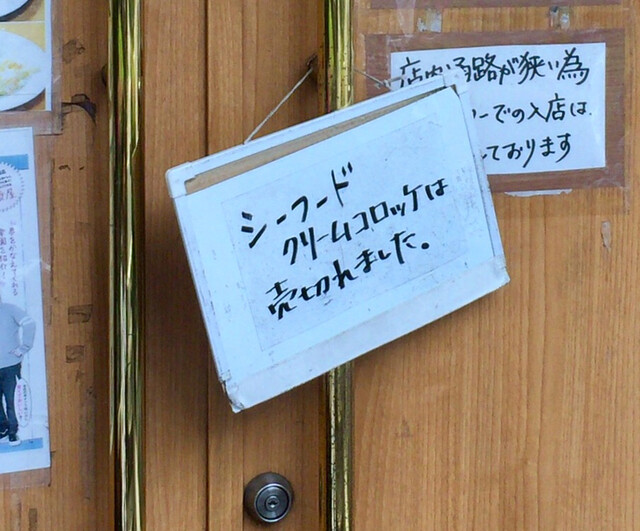 シーフード
クリームコロッケは
売切れました。
店内通路が狭い為
ーでの入店は、
ております